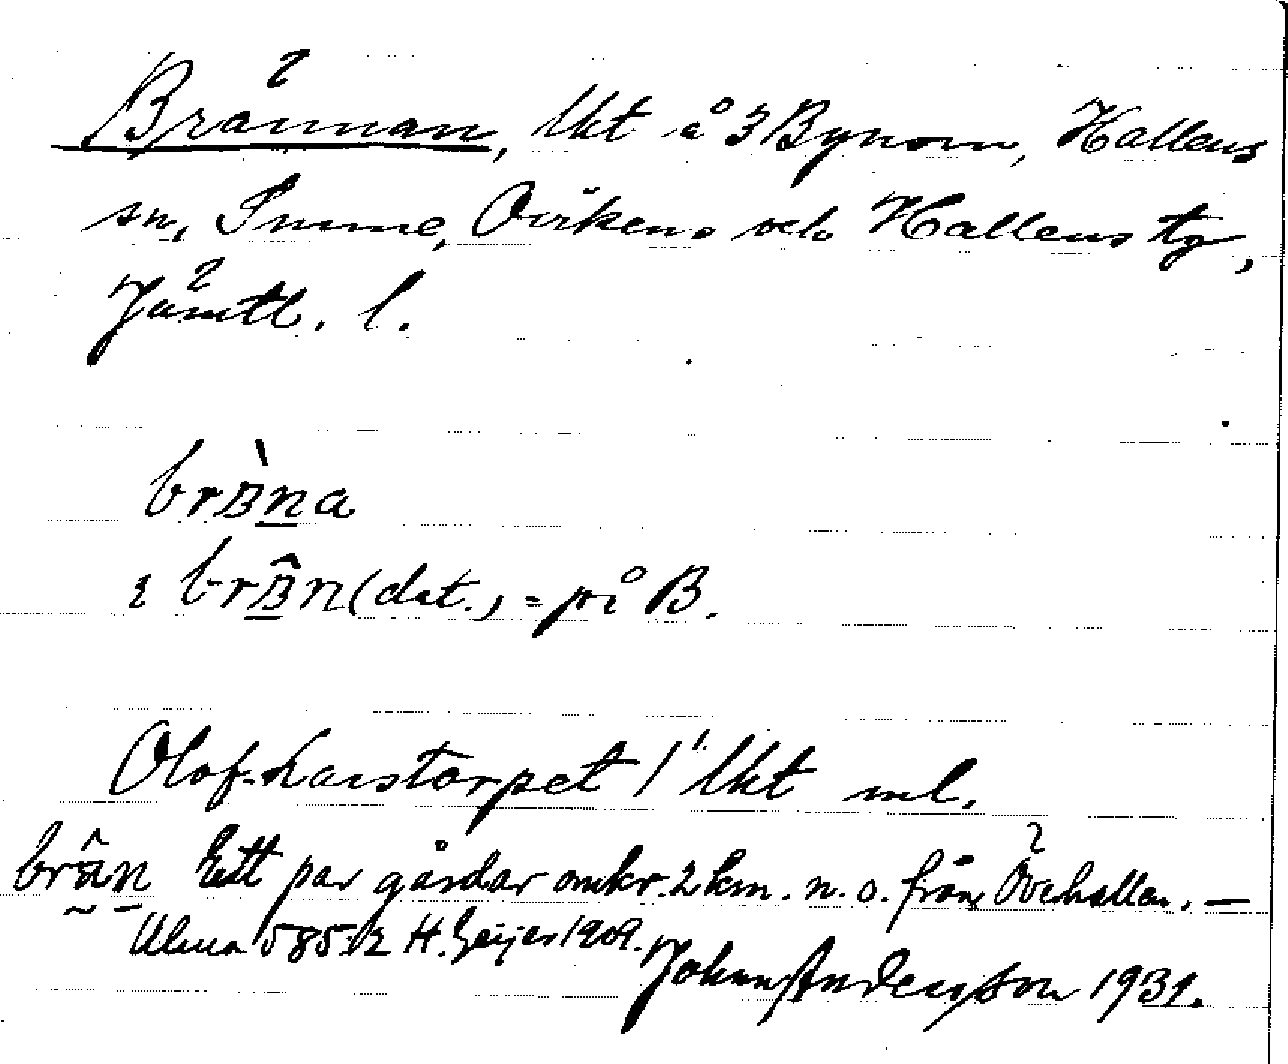 Brännan, lkt å 3 Bynom, Hallens
sn, Sunne, Ovikens och Hallens tg,
Jämtl. l.
brɜ̀na
ɩ brɜ̂n (dat.) = på B.
Olof-Larstorpet 1" lkt ml.
brân Ett par gårdar omkr. 2 km. n. o. från Överhallen. —
Ulma 585:2 H. Geijer 1909.
Johan Andersson 1931.